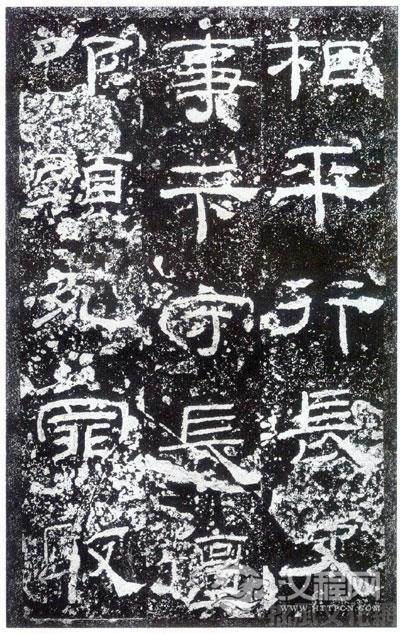 相平行長史
事卞守長擅
叩頭死罪敢
汉程网
HTTPCN.COM